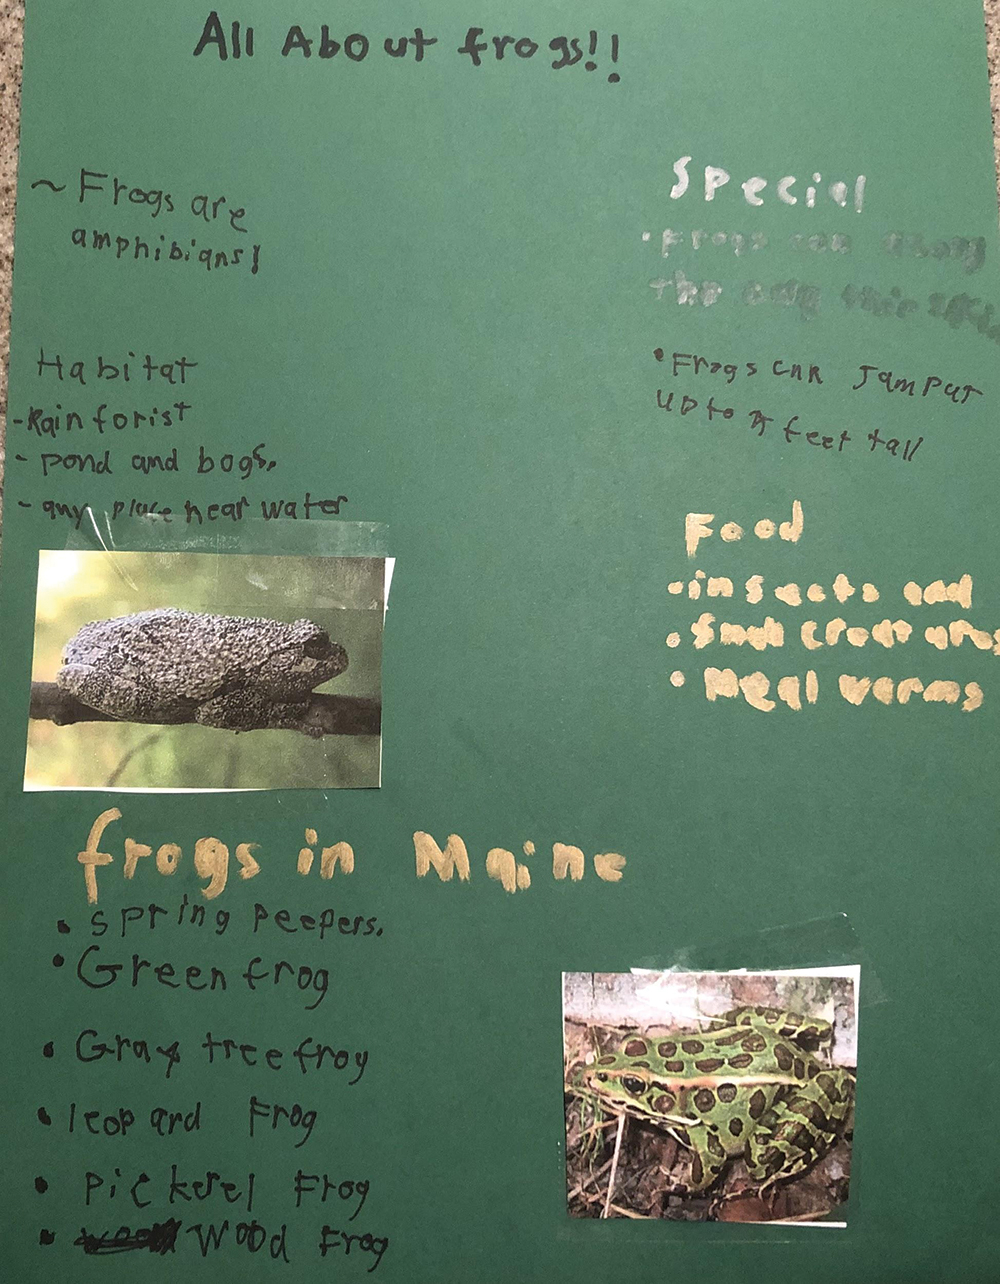 All About frogs!!
~ Frogs are
amphibians!
Habitat
-Rain forist
- pond and bogs.
- any place near water
Special
• Frogs can
the only
• Frogs can Jam put
up to feet tall
Food
• insects and
• Small
• Meal warms
frogs in Maine
• Spring Peepers.
• Green frog
• Gray tree froy
• leopard Frog
• Pickerel Frog
• Wood Frog